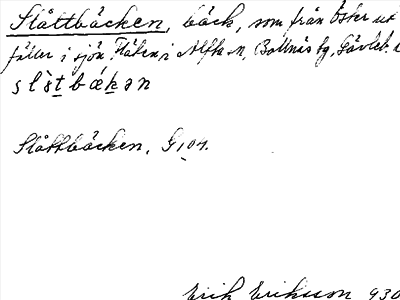 Slåttbäcken, bäck, som från öster ut
faller i sjön Fläken i Alfta sn, Bollnäs tg, Gävleb. l
Slåttbäcken, G 104.
Erik Eriksson 930